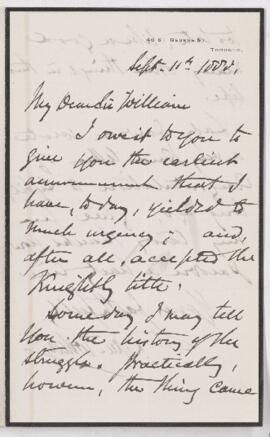 Toronto.
Sept. 11th
My Dear Sir William
I owe it to you to
give you the earliest
announcement that I
have, to-day, yielded to
much urgency; and,
after all, accepted the
Knightly title.
Some day I may tell
you the history of the
struggle. Practically,
however, the thing came